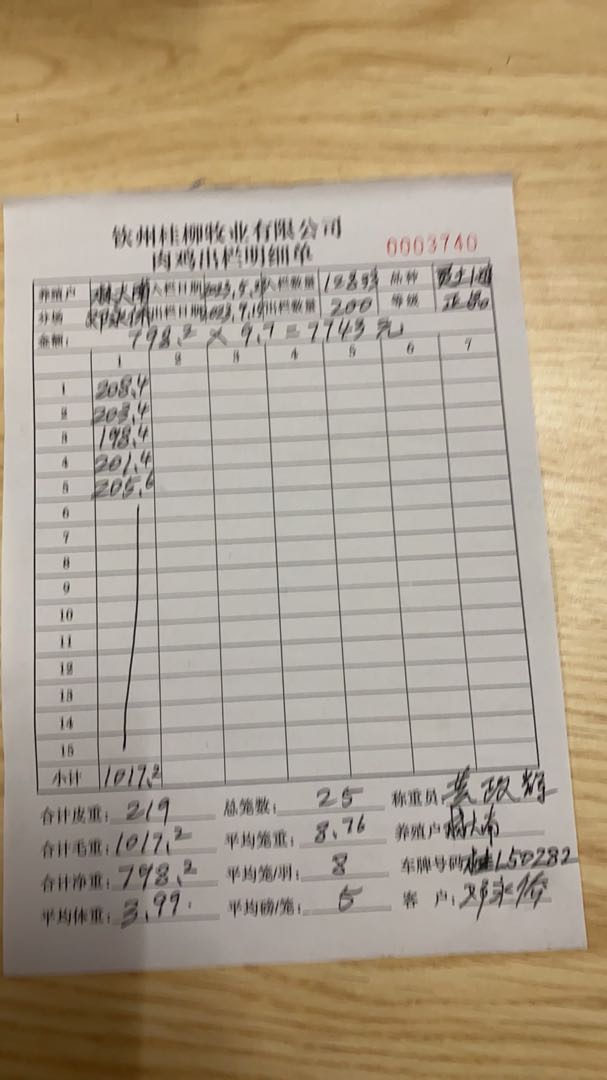 钦州桂柳牧业有限公司
肉鸡出栏明细单
0003740
养殖户 林大南 入栏日期 入栏数量 品种
分场 出栏日期 出栏数量 200 等级 正品
金额： 798.2 × 9.7 = 7743元
1 2 3 4 5 6 7
1 208.4
2 203.4
3 198.4
4 201.4
5 205.6
6
7
8
9
10
11
12
13
14
15
小计 1017.2
合计皮重： 219 总笼数： 25 称重员
合计毛重： 1017.2 平均笼重： 8.76 养殖户 林大南
合计净重： 798.2 平均笼/羽： 8 车牌号码 L50282
平均体重： 3.99 平均磅/笼： 5 客 户： 邓永